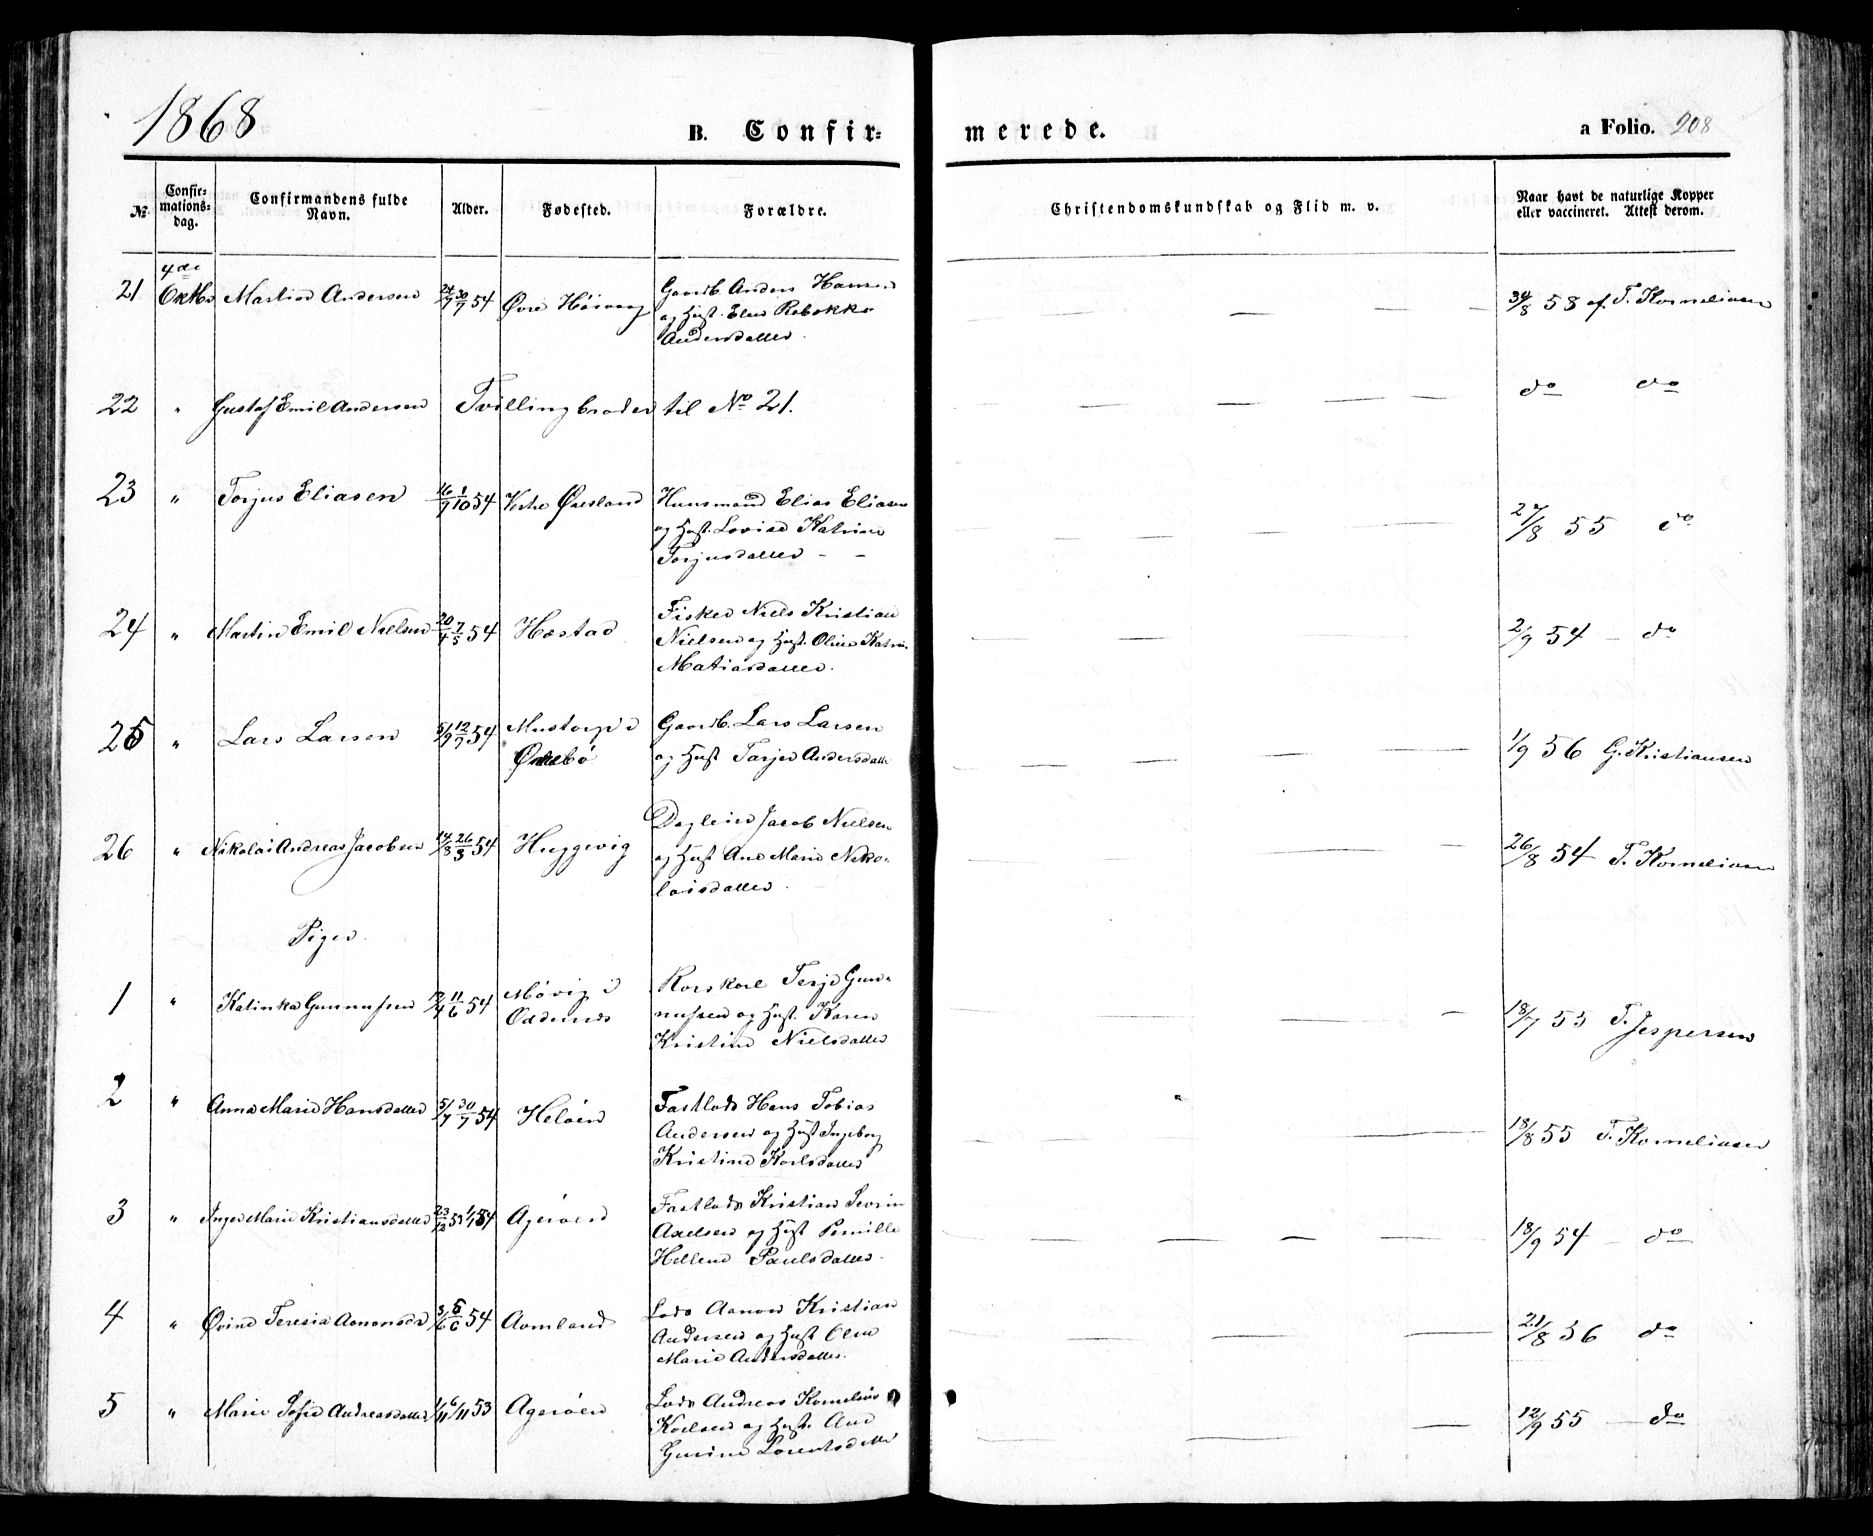 1868
B. Confir=
merede.
a Folio. 208
№.
Confir=
mations=
dag.
Confirmandens fulde
Navn.
Alder.
Fødested.
Forældre.
Christendomskundskab og Flid m. v.
Naar havt de naturlige Kopper
eller vaccineret. Attest derom.
21 4de Oktbr Martin Andersen 24/7 30/7 54 Øvre Høivaag
Gaardb. Anders Hansen
og Hust. Elen Rebekka
Andersdatter.
— — — 30/8 58 af T. Korneliusen
22 „ Gustaf Emil Andersen Tvillingbroder til No 21.
— — — — do do
23 „ Torjus Eliasen 16/9 1/10 54 Vestre Øresland
Huusmand Elias Eliasen
og Hust. Lovise Katrine
Torjusdatter — —
— — — — 27/8 55 do
24 „ Martin Emil Nielsen 20/4 7/5 54 Hæstad
Fisker Niels Kristian
Nielsen og Hust. Oline Katrine
Matiasdatter.
— — — — 2/9 54 — do
25 „ Lars Larsen 5/9 12/9 54
Mustorp i
Øiestbø
Gaardb. Lars Larsen
og Hust Tarjer Andersdatter
— — — — 1/9 56 G. Kristiansen
26 „ Nikolai Andreas Jacobsen 14/8 26/3 54 Huggevig
Dagleier Jacob Nielsen
og Hust Ane Marie Niko=
laisdatter.
— — — 26/8 54 T. Korneliusen
Piger.
1 „ Kalinka Gunnufsen 12/4 11/6 54
Møvig i
Oddernes
Korskarl Terje Gun=
nufsen og Hust. Karen
Kristine Nielsdatter
— — — 18/7 55 T. Jespersen
2 „ Anna Marie Hansdatter 5/7 30/7 54 Heløen
Fastlods Hans Tobias
Andersen og Hust Ingeborg
Kristine Karlsdatter
— — — 18/8 55 T. Korneliusen
3 „ Inger Marie Kristiansdatter 23/12 53 1/1 54 Agerøen
Fastlods Kristian Severin
Axelsen og Hust Pernille
Hellene Paulsdatter.
— — — — 18/9 54 — do
4 „ Øvine Teresia Aanonsdr 3/6 5/6 54 Aamland
Lods Aanon Kristian
Andersen og Hust Olene
Marie Andersdatter.
— — — 21/8 56 do
5 „ Marie Sofie Andreasdatter 1/11 6/11 53 Agerøen
Lods Andreas Kornelius
Koelsen og Hust. Ane
Gurine Lorentsdatter
— — — 12/9 55 — do